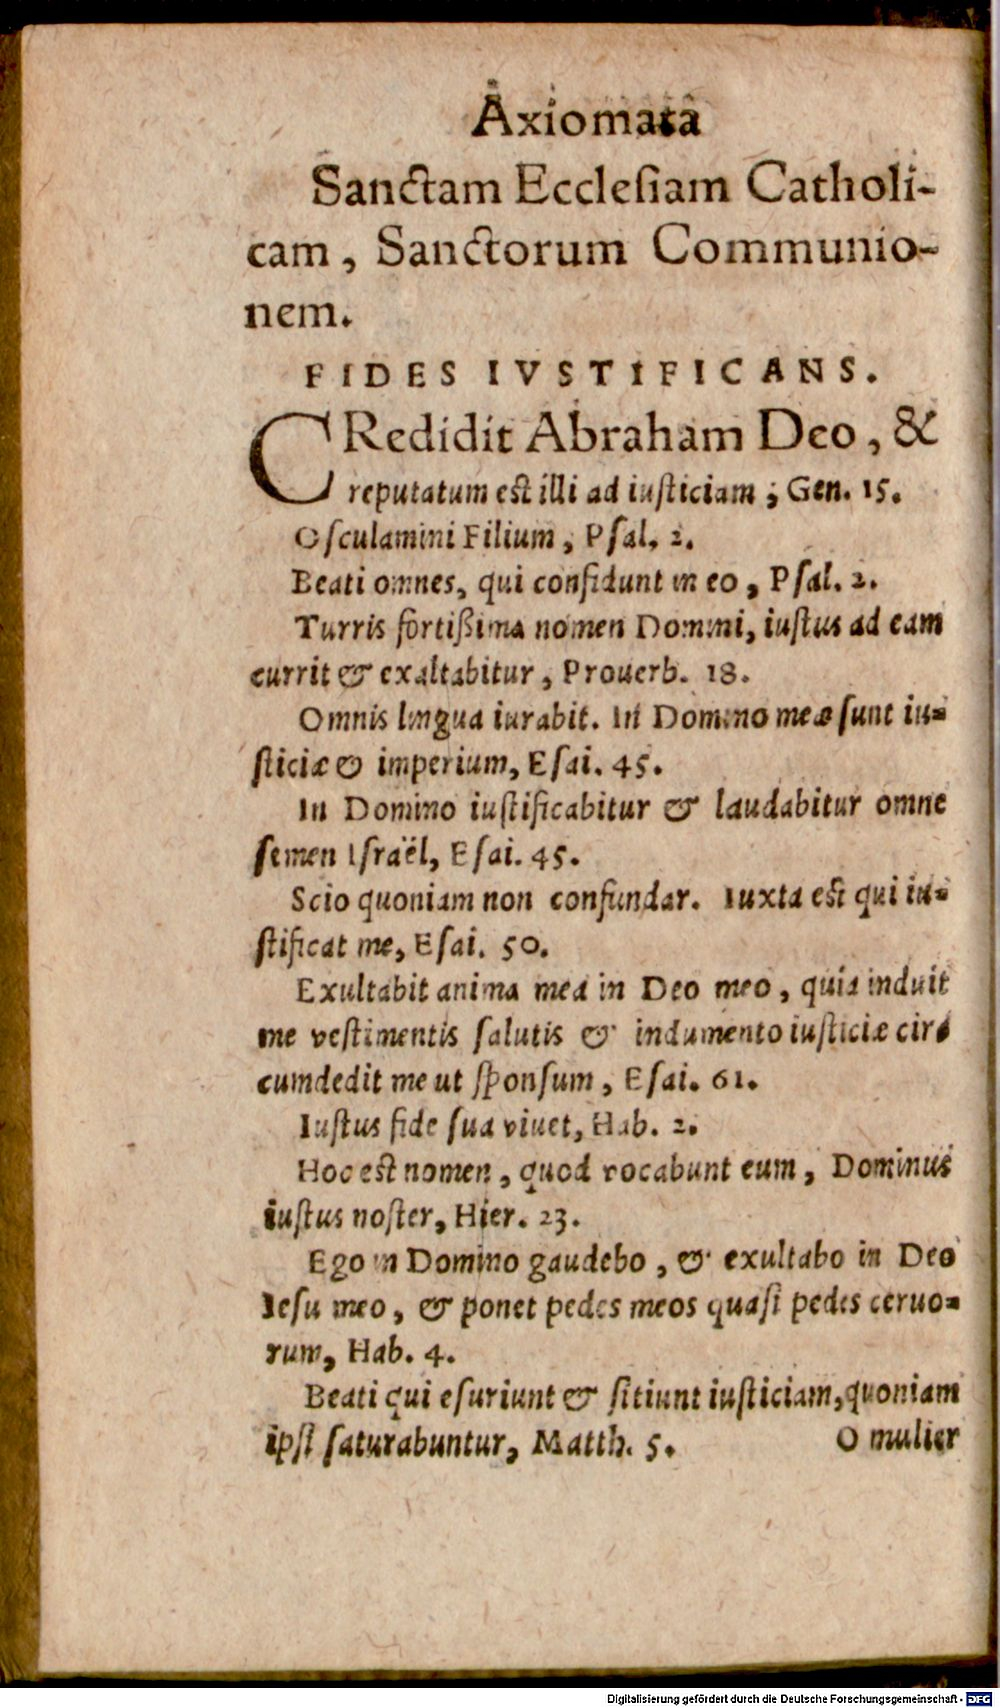 Axiomata
Sanctam Ecclesiam Catholi-
cam, Sanctorum Communio-
nem.
FIDES IVSTIFICANS.
CRedidit Abraham Deo, &
reputatum est illi ad iusticiam; Gen. 15.
Osculamini Filium, Psal. 2.
Beati omnes, qui confidunt in eo, Psal. 2.
Turris fortißima nomen Domini, iustus ad eam
currit & exaltabitur, Prouerb. 18.
Omnis lingua iurabit. In Domino meæ sunt iu-
sticiæ & imperium, Esai. 45.
In Domino iustificabitur & laudabitur omne
semen Israël, Esai. 45.
Scio quoniam non confundar. Iuxta est qui iu-
stificat me, Esai. 50.
Exultabit anima mea in Deo meo, quia induit
me vestimentis salutis & indumento iusticiæ cir-
cumdedit me ut sponsum, Esai. 61.
Iustus fide sua viuet, Hab. 2.
Hoc est nomen, quod vocabunt eum, Dominus
iustus noster, Hier. 23.
Ego in Domino gaudebo, & exultabo in Deo
Iesu meo, & ponet pedes meos quasi pedes ceruo-
rum, Hab. 4.
Beati qui esuriunt & sitiunt iusticiam, quoniam
ipsi saturabuntur, Matth. 5. O mulier
Digitalisierung gefördert durch die Deutsche Forschungsgemeinschaft - DFG